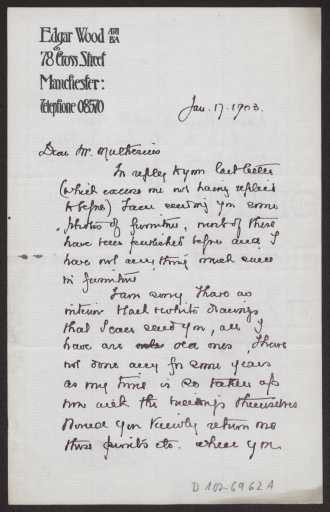 Edgar Wood ARIBA
78 Cross Street
Manchester:
Telephone 08570
Jan. 17. 1903.
Dear Mr. Muthesius
In reply to your last letter
(which excuse me not having replied
to before) I am sending you some
photos of furniture, most of these
have been published before and I
have not anything much new
in furniture
I am sorry I have no
interior black & white drawings
that I can send you, all I
have are old ones, I have
not done any for some years
as my time is so taken up
now with the buildings themselves
Would you kindly return me
these prints etc. when you
D 102-6962A